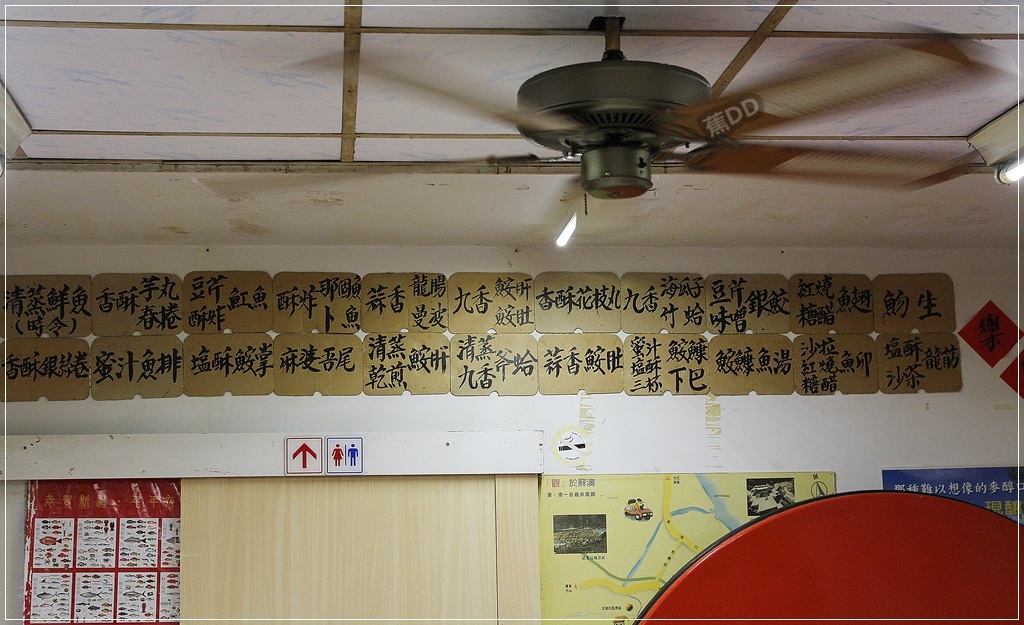 蕉DD
清蒸鮮魚
(時令)
香酥芋丸
春捲
豆芹
酥炸
魟魚
酥炸
那個魚
卜魚
蒜香
龍腸
曼波
九香
鮫肝
鮫肚
香酥花枝丸
九香
海瓜子
竹蛤
豆芹
味噌
銀鮫
紅燒
糖醋
魚翅
魩生
香酥銀絲卷
蜜汁魚排
塩酥鮫掌
麻婆吾尾
清蒸
乾煎
鮫肝
清蒸
九香
斧蛤
蒜香鮫肚
蜜汁
塩酥
三杯
鮫鱇
下巴
鮫鱇魚湯
沙拉
紅燒
糖醋
魚卵
塩酥
沙茶
龍筋
樂
恭賀新禧
年年有
「觀」於蘇澳
那種難以想像的麥醇口
現醺